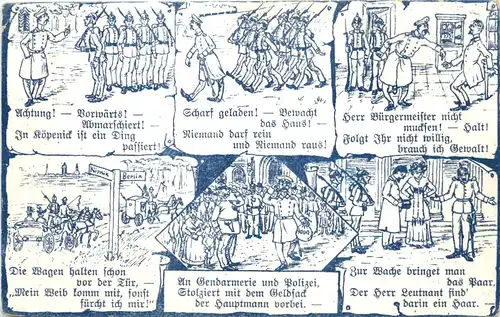 Achtung! — Vorwärts! —
Abmarschiert!
In Köpenick ist ein Ding
passiert!
Scharf geladen! — Bewacht
das Haus! —
Niemand darf rein
und Niemand raus!
Herr Bürgermeister nicht
mucksen! — Halt!
Folgt Ihr nicht willig,
brauch ich Gewalt!
Berlin
Die Wagen halten schon
vor der Tür, —
„Mein Weib komm mit, sonst
fürcht ich mir!“
An Gendarmerie und Polizei,
Stolziert mit dem Geldsack
der Hauptmann vorbei. —
Zur Wache bringet man
das Paar,
Der Herr Leutnant find'
darin ein Haar. —